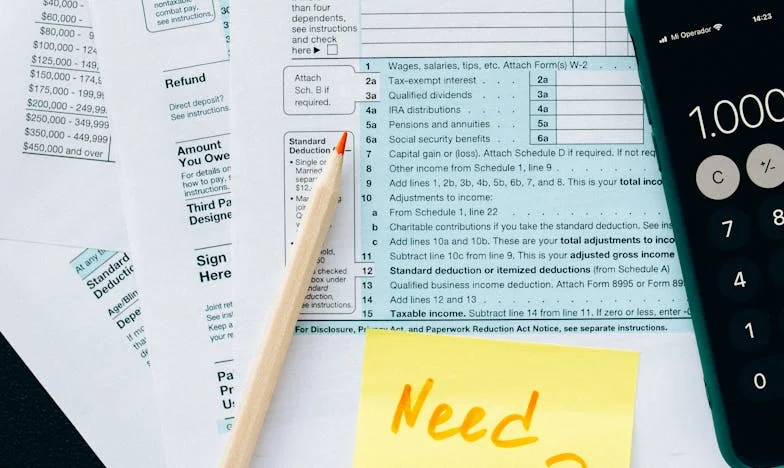 $40,000 -
$60,000 -
$80,000 - 9
$100,000 - 124
$125,000 - 149,
$150,000 - 174,9
$175,000 - 199,99
$200,000 - 249,99
$250,000 - 349,999
$350,000 - 449,999
$450,000 and over
nontaxable
combat pay,
see instructions.
Refund
Direct deposit?
See instructions.
Amount
You Owe
For details on
how to pay,
instructions.
Third Pa
Designe
Sign
Here
Joint ret
See ins
Keep a
your re
Pa
Pr
U
At any ti
Standard
Deductic
Age/Blin
Depe
If mo
tha
than four
dependents,
see instructions
and check
here ▶
Attach
Sch. B if
required.
Standard
Deduction
• Single or
Married
separ
$12,
• Ma
joi
Q
$
old,
50
checked
box under
ndard
duction,
e instructions.
1 Wages, salaries, tips, etc. Attach Form(s) W-2
2a Tax-exempt interest . . . 2a
3a Qualified dividends . . . 3a
4a IRA distributions . . . 4a
5a Pensions and annuities . . 5a
6a Social security benefits . . 6a
7 Capital gain or (loss). Attach Schedule D if required. If not req
8 Other income from Schedule 1, line 9 . .
9 Add lines 1, 2b, 3b, 4b, 5b, 6b, 7, and 8. This is your total inco
10 Adjustments to income:
a From Schedule 1, line 22 . .
b Charitable contributions if you take the standard deduction. See ins
c Add lines 10a and 10b. These are your total adjustments to inco
11 Subtract line 10c from line 9. This is your adjusted gross income
12 Standard deduction or itemized deductions (from Schedule A)
13 Qualified business income deduction. Attach Form 8995 or Form 899
14 Add lines 12 and 13 . .
15 Taxable income. Subtract line 14 from line 11. If zero or less, enter -0
For Disclosure, Privacy Act, and Paperwork Reduction Act Notice, see separate instructions.
Need
?
Mi Operador 14:23
1.000
C +/-
7 8
4
1
0